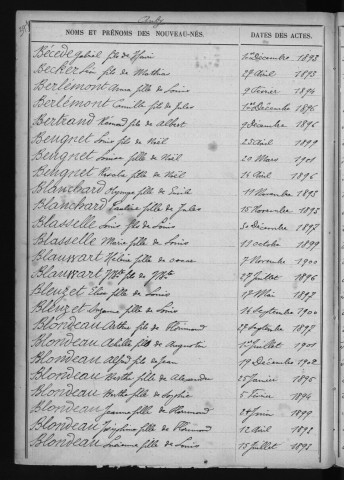 NOMS ET PRÉNOMS DES NOUVEAU-NÉS. DATES DES ACTES.
Bécède Gabriel fils de Henri 1er Décembre 1893
Becker Léon fils de Mathieu 29 Avril 1893
Berlémont Anna fille de Louis 9 Février 1894
Berlémont Camille fils de Jules 1er Décembre 1896
Bertrand fils de Albert 9 Décembre 1896
Beugnet Louis fils de Noël 23 Avril 1899
Beugnet Louise fille de Noël 20 Mars 1901
Beugnet fille de Noël 26 Avril 1896
Blanchard fille de Emile 11 Novembre 1893
Blanchard Pauline fille de Jules 15 Novembre 1893
Blasselle Louis fils de Louis 30 Décembre 1897
Blasselle Marie fille de Louis 11 Octobre 1899
Blauwart Hélène fille de 7 Novembre 1900
Blauwart 27 Juillet 1896
Bleuzet Elise fille de Louis 17 Mai 1897
Bleuzet Suzanne fille de Louis 16 Septembre 1900
Blondeau Arthur fils de Florimond 27 Septembre 1897
Blondeau Achille fils de Augustin 1er Juillet 1901
Blondeau Alfred fils de Jean 19 Décembre 1902
Blondeau Berthe fille de Alexandre 25 Janvier 1895
Blondeau Berthe fille de Sophie 5 Février 1894
Blondeau Jeanne fille de Florimond 24 Juin 1899
Blondeau Joséphine fille de Florimond 12 Avril 1892
Blondeau Lucienne fille de Louis 15 Juillet 1893